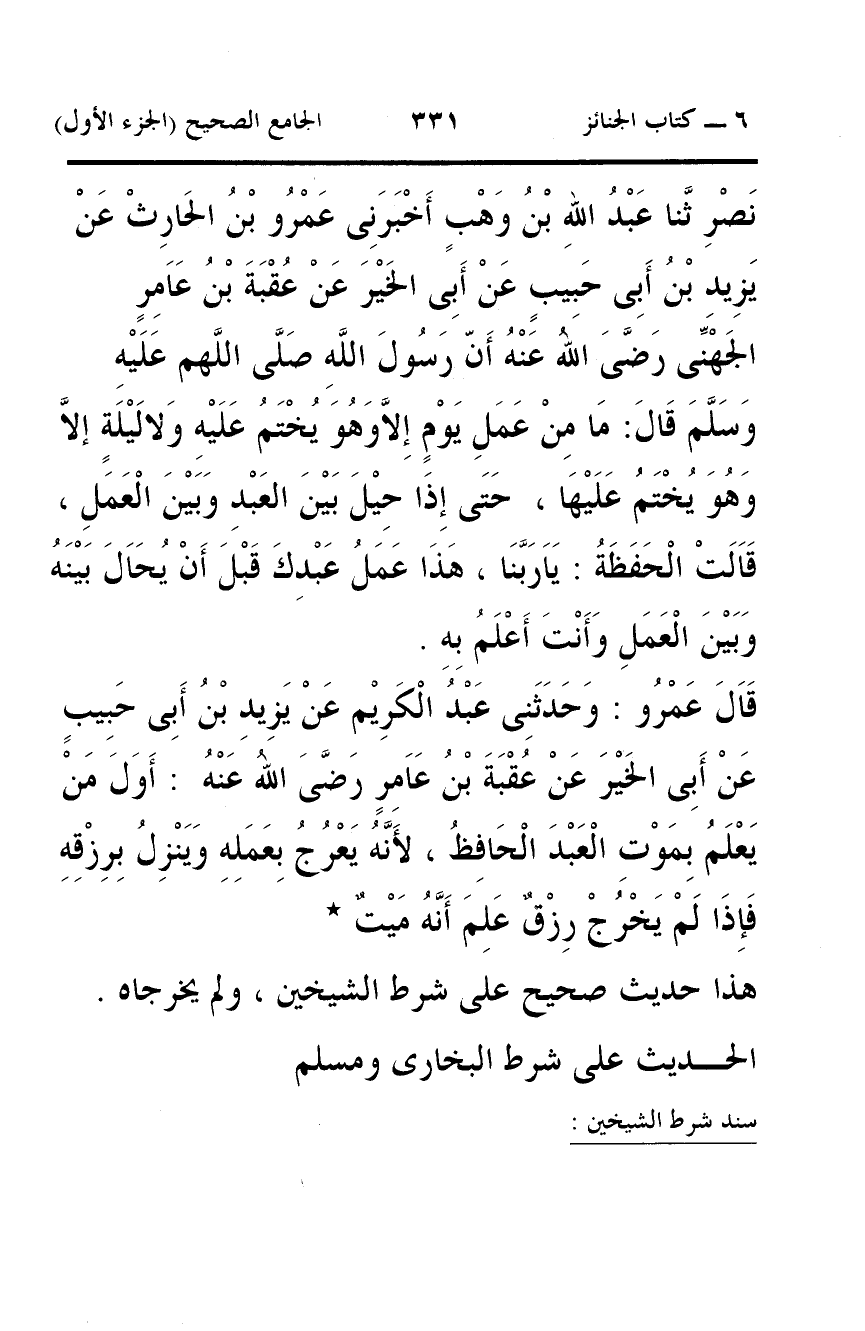 ٦ ــ كتاب الجنائز ٣٣١ الجامع الصحيح (الجزء الأول)
نَصْرِ ثَّنا عَبْدُ اللهِ بْنُ وَهْبٍ أَخْبَرَنِى عَمْرُو بْنُ الحَارِثْ عَنْ
يَزِيدِ بْنُ أَبِى حَبِيبٍ عَنْ أَبِى الخَيْرَ عَنْ عُقْبَةَ بْنُ عَامِرٍ
الجَهْنِّى رَضَّىَ اللهُ عَنْهُ أَنّ رَسُولَ اللَّهِ صَلَّى اللَّهم عَلَيْهِ
وَسَلَّمَ قَالَ: مَا مِنْ عَمَلِ يَوْمٍ إِلاَّوَهُوَ يُخْتَمُ عَلَيْهِ وَلاَلَيْلَةٍ إِلاَّ
وَهُوَ يُخْتمُ عَلَيْهَا ، حَتَى إِذَا حِيْلَ بَيْنَ العَبْدِ وَبَيْنَ الْعَمَلِ ،
قَالَتْ الْحَفَظَةُ : يَارَبَّنَا ، هَذَا عَمَلُ عَبْدِكَ قَبْلَ أَنْ يُحَالَ بَيْنَهُ
وَبَيْنَ الْعَمَلِ وَأَنْتَ أَعْلَمُ بِهِ .
قَالَ عَمْرُو : وَحَدَثَنِى عَبْدُ الْكَرِيْمِ عَنْ يَزِيدِ بْنُ أَبِى حَبِيبٍ
عَنْ أَبِى الخَيْرَ عَنْ عُقْبَةَ بْنُ عَامِرٍ رَضَّىَ اللهُ عَنْهُ : أَوَلَ مَنْ
يَعْلَمُ بِمَوْتِ الْعَبْدَ الْحَافِظُ ، لأَنَّهُ يَعْرُجُ بِعَمَلِهِ وَيَنْزِلُ بِرِزْقِهِ
فَإِذَا لَمْ يَخْرُجْ رِزْقٌ عَلِمَ أَنَّهُ مَيْتٌ *
هذا حديث صحيح على شرط الشيخين ، ولم يخرجاه .
الحـــديث على شرط البخارى ومسلم
سند شرط الشيخين :